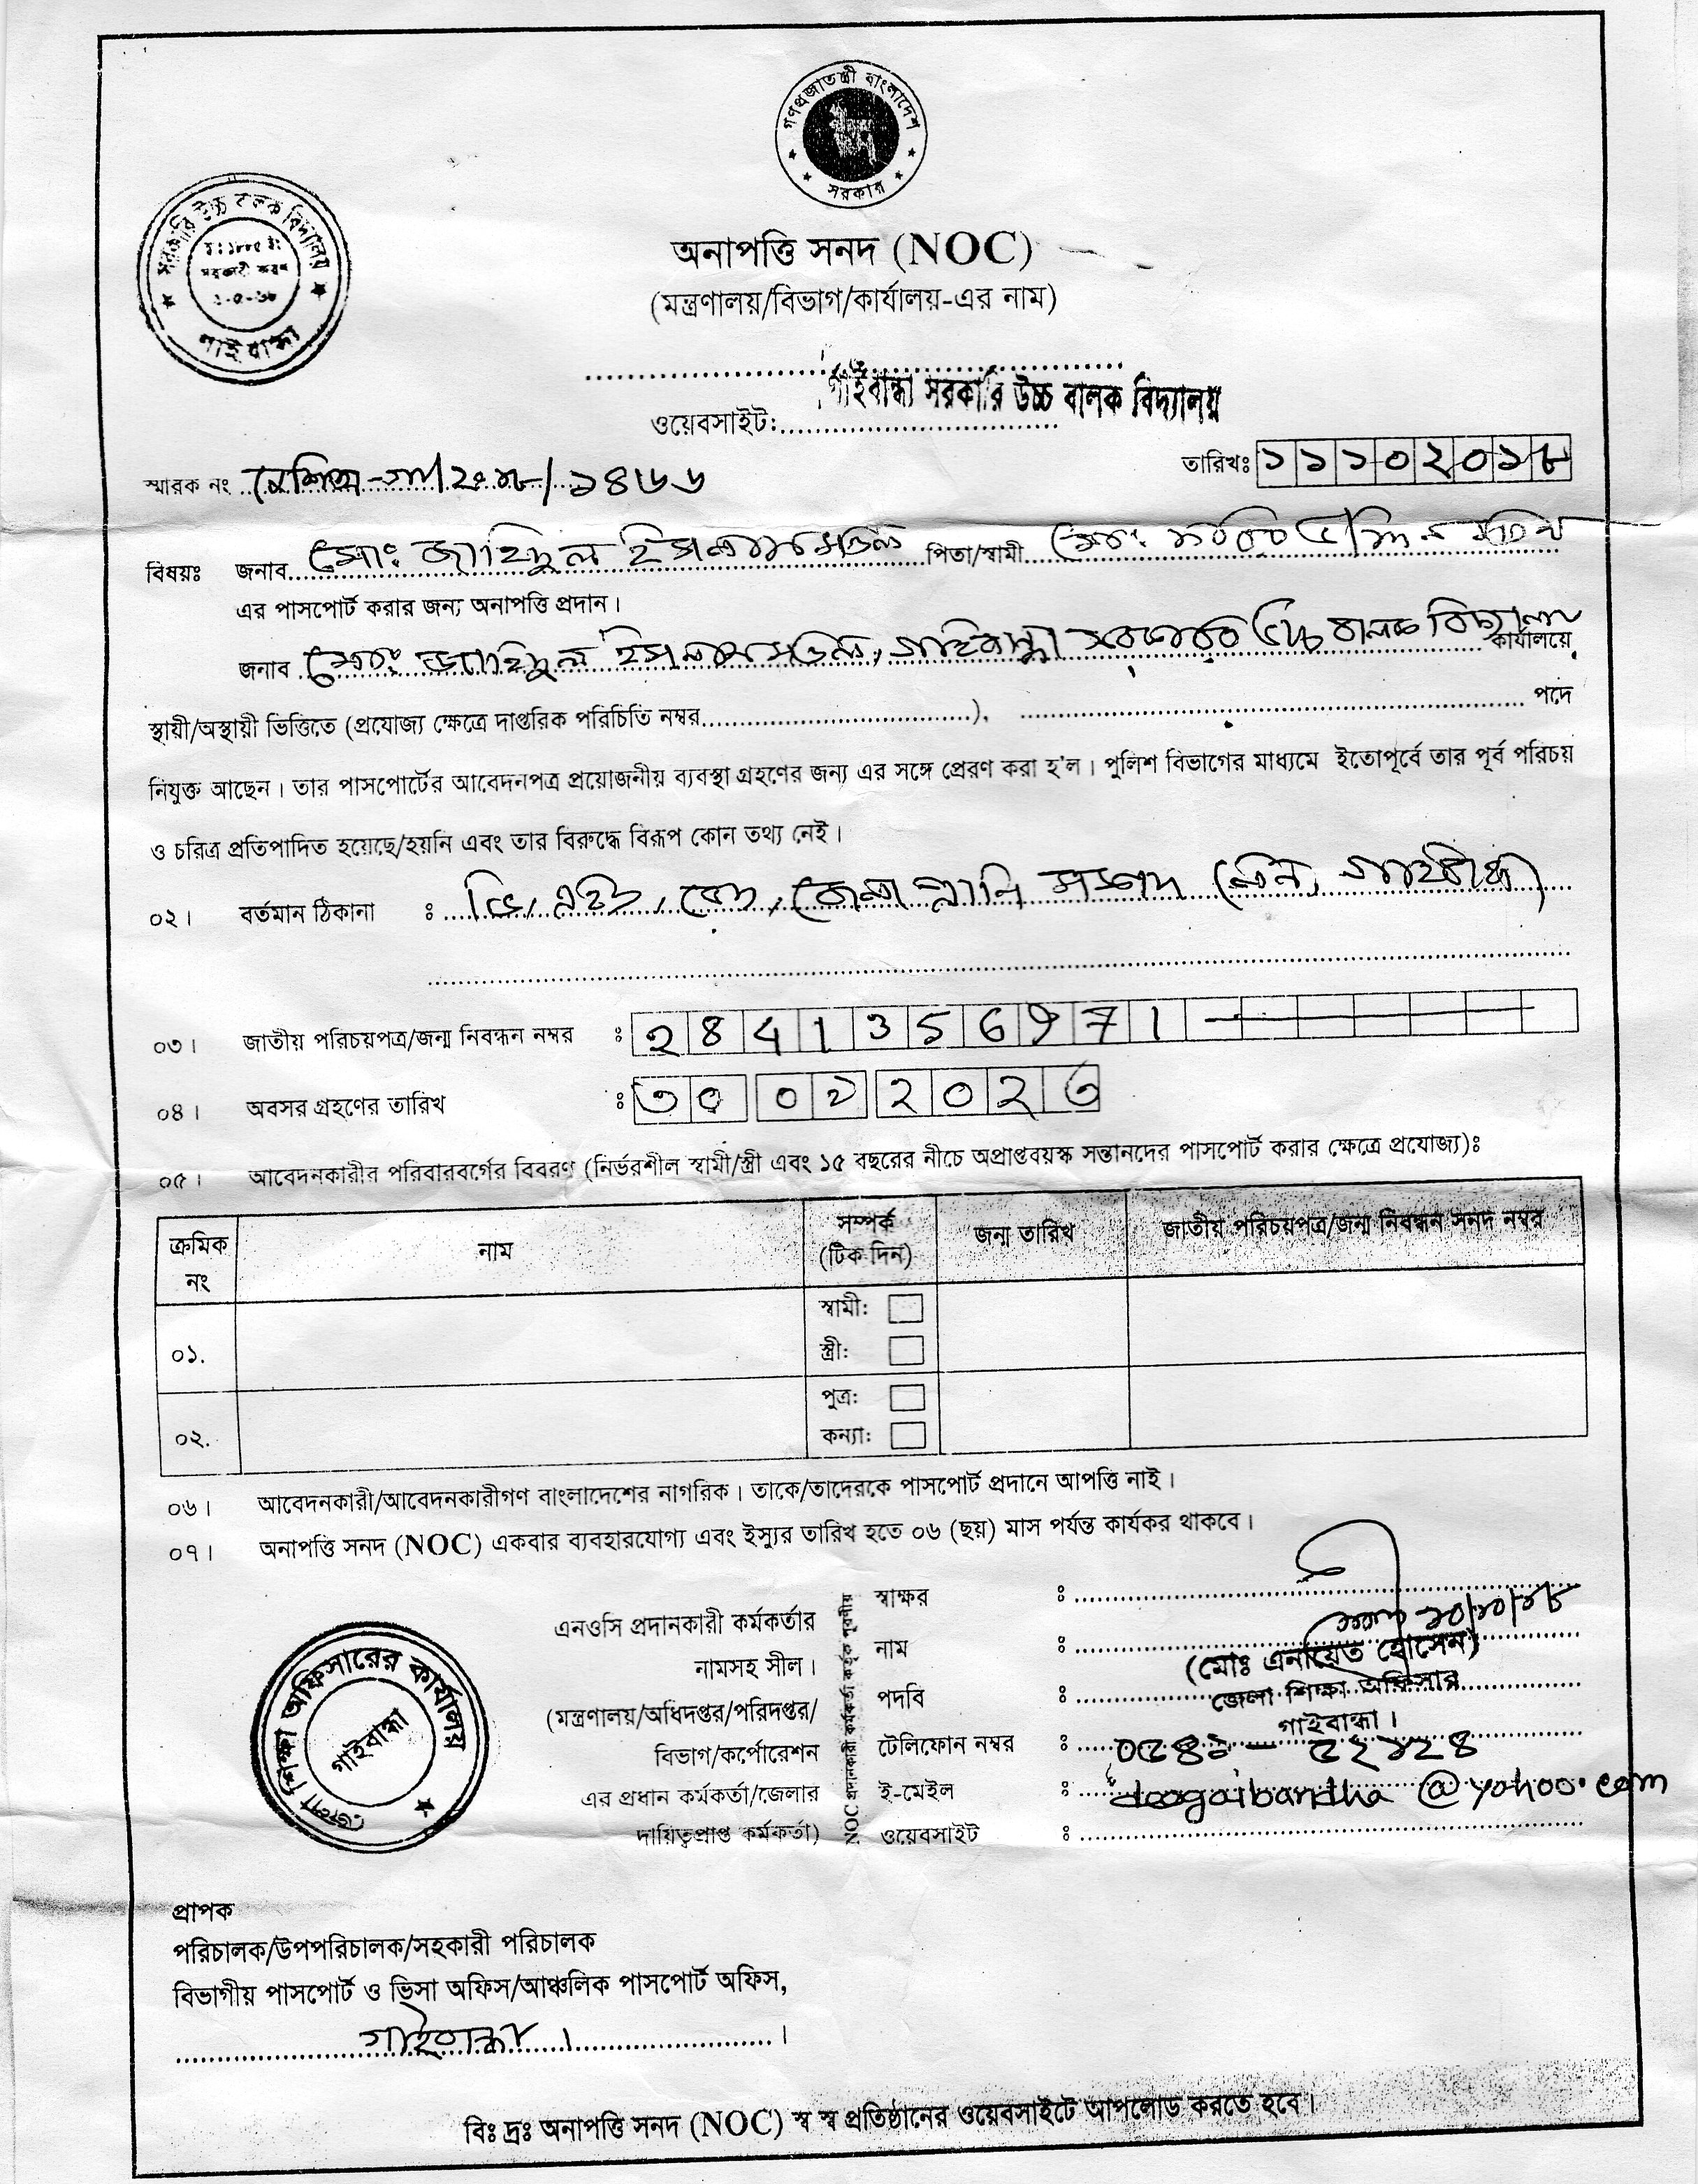 গণপ্রজাতন্ত্রী বাংলাদেশ
সরকার
সরকারি উচ্চ বালক বিদ্যালয়
গাইবান্ধা
অনাপত্তি সনদ (NOC)
(মন্ত্রণালয়/বিভাগ/কার্যালয়-এর নাম)
গাইবান্ধা সরকারি উচ্চ বালক বিদ্যালয়
ওয়েবসাইট:
তারিখঃ ১১১০২০১৮
স্মারক নং
বিষয়ঃ জনাব মোঃ জাহিদুল ইসলাম মন্ডল পিতা/স্বামী মোঃ
এর পাসপোর্ট করার জন্য অনাপত্তি প্রদান।
জনাব মোঃ জাহিদুল ইসলাম মন্ডল, গাইবান্ধা সরকারি উচ্চ বালক বিদ্যালয় কার্যালয়ে,
স্থায়ী/অস্থায়ী ভিত্তিতে (প্রযোজ্য ক্ষেত্রে দাপ্তরিক পরিচিতি নম্বর), পদে
নিযুক্ত আছেন। তার পাসপোর্টের আবেদনপত্র প্রয়োজনীয় ব্যবস্থা গ্রহণের জন্য এর সঙ্গে প্রেরণ করা হ'ল। পুলিশ বিভাগের মাধ্যমে ইতোপূর্বে তার পূর্ব পরিচয়
ও চরিত্র প্রতিপাদিত হয়েছে/হয়নি এবং তার বিরুদ্ধে বিরূপ কোন তথ্য নেই।
০২। বর্তমান ঠিকানা ঃ ভি, এইড, রোড,
০৩। জাতীয় পরিচয়পত্র/জন্ম নিবন্ধন নম্বর ঃ
০৪। অবসর গ্রহণের তারিখ ঃ
০৫। আবেদনকারীর পরিবারবর্গের বিবরণ (নির্ভরশীল স্বামী/স্ত্রী এবং ১৫ বছরের নীচে অপ্রাপ্তবয়স্ক সন্তানদের পাসপোর্ট করার ক্ষেত্রে প্রযোজ্য)ঃ
ক্রমিক নং নাম সম্পর্ক (টিক দিন) জন্ম তারিখ জাতীয় পরিচয়পত্র/জন্ম নিবন্ধন সনদ নম্বর
স্বামী:
০১. স্ত্রী:
পুত্র:
০২. কন্যা:
০৬। আবেদনকারী/আবেদনকারীগণ বাংলাদেশের নাগরিক। তাকে/তাদেরকে পাসপোর্ট প্রদানে আপত্তি নাই।
০৭। অনাপত্তি সনদ (NOC) একবার ব্যবহারযোগ্য এবং ইস্যুর তারিখ হতে ০৬ (ছয়) মাস পর্যন্ত কার্যকর থাকবে।
জেলা শিক্ষা অফিসারের কার্যালয়
গাইবান্ধা
এনওসি প্রদানকারী কর্মকর্তার
নামসহ সীল।
(মন্ত্রণালয়/অধিদপ্তর/পরিদপ্তর/
বিভাগ/কর্পোরেশন
এর প্রধান কর্মকর্তা/জেলার
দায়িত্বপ্রাপ্ত কর্মকর্তা)
NOC প্রদানকারী কর্মকর্তা কর্তৃক পূরণীয়
স্বাক্ষর ঃ
১০/১০/১৮
নাম ঃ (মোঃ এনায়েত হোসেন)
পদবি ঃ জেলা শিক্ষা অফিসার
গাইবান্ধা।
টেলিফোন নম্বর ঃ
ই-মেইল ঃ deogaibandha @yahoo.com
ওয়েবসাইট ঃ
প্রাপক
পরিচালক/উপপরিচালক/সহকারী পরিচালক
বিভাগীয় পাসপোর্ট ও ভিসা অফিস/আঞ্চলিক পাসপোর্ট অফিস,
গাইবান্ধা।
বিঃ দ্রঃ অনাপত্তি সনদ (NOC) স্ব স্ব প্রতিষ্ঠানের ওয়েবসাইটে আপলোড করতে হবে।